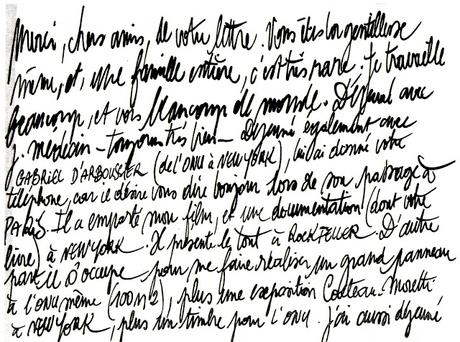 Merci, chers amis, de votre lettre. Vous êtes la gentillesse
même, et, une famille entière, c'est très rare. Je travaille
beaucoup, et vois beaucoup de monde. Déjeuné avec
J. Médecin - toujours très bien - Déjeuné également avec
GABRIEL D'ARBOUSSIER (de l'ONU à NEW YORK), lui ai donné votre
téléphone, car il désire vous dire bonjour lors de son passage à
PARIS. Il a emporté mon film, et une documentation (dont votre
livre) à NEW YORK. Il présente le tout à ROCKFELLER. D'autre
part il s'occupe pour me faire réaliser un grand panneau
à l'ONU même (100 m2), plus une exposition Cocteau-Moretti
à NEW YORK, plus un timbre pour l'ONU. J'ai aussi déjeuné